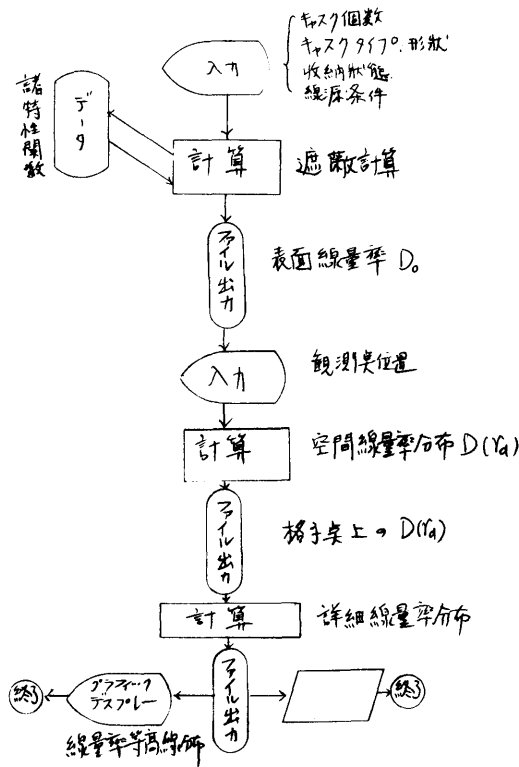 キャスク個数
キャスクタイプ、形状
収納状態
線源条件
入力
諸特性関数
データ
計算
遮蔽計算
ファイル出力
表面線量率 D₀
入力
観測点位置
計算
空間線量率分布 D(rd)
ファイル出力
格子点上の D(rd)
計算
詳細線量率分布
ファイル出力
グラフィック
デスプレー
終了
終了
線量率等高線分布